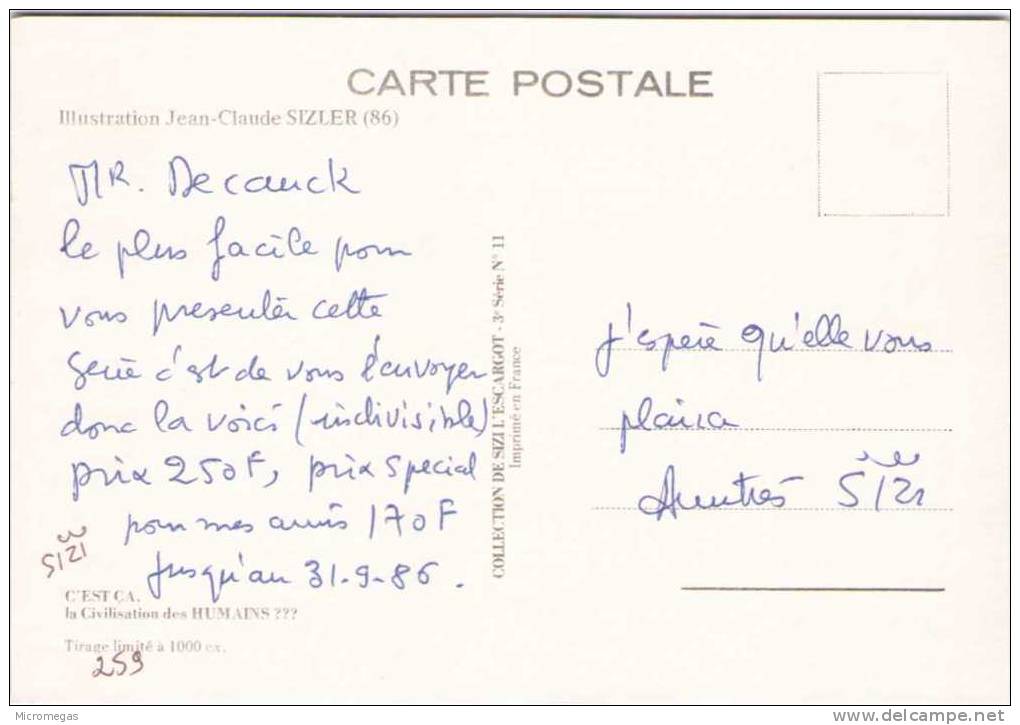 CARTE POSTALE
Illustration Jean-Claude SIZLER (86)
MR. Decanck
le plus facile pour
vous presenter cette
serie c'est de vous l'envoyer
donc la voici (indivisible)
prix 250F, prix special
pour mes amis 170F
Jusqu'au 31.9.86.
SIZI
C'EST ÇA.
la Civilisation des HUMAINS ???
Tirage limité à 1000 ex.
259
COLLECTION DE SIZI L'ESCARGOT - 3e Série N° 11
Imprimé en France
J'espere qu'elle vous
plaira
SIZI
Micromegas
www.delcampe.net